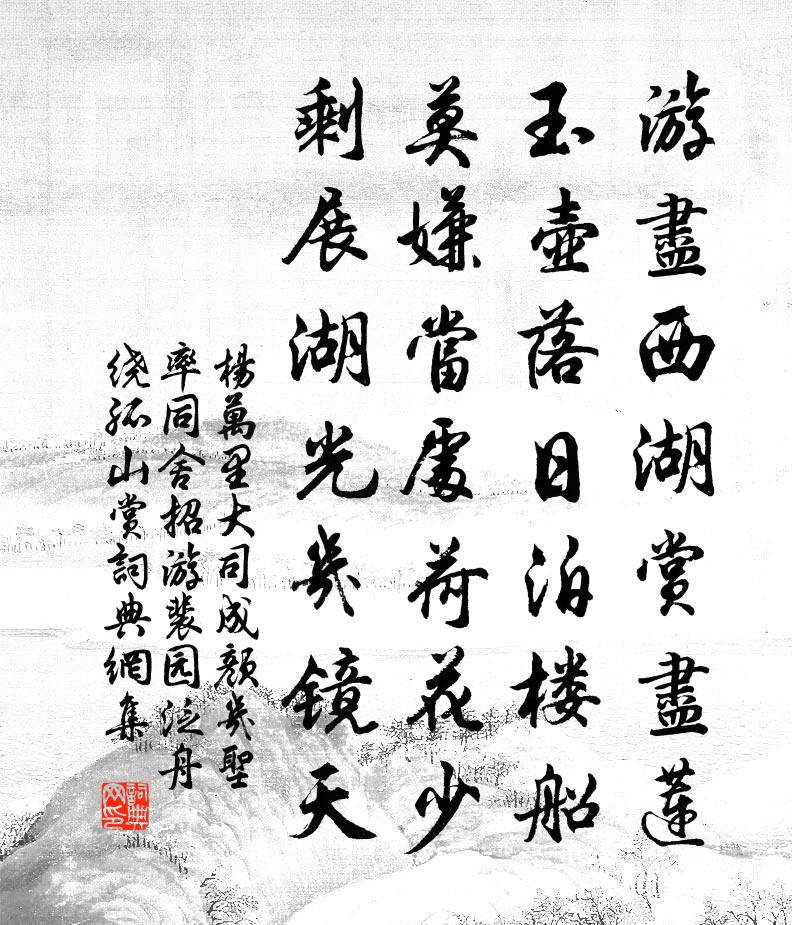 游盡西湖賞盡蓮
玉壺落日泊楼船
莫嫌當處荷花少
剩展湖光幾镜天
楊萬里大司成顏幾聖
率同舍招游裴园泛舟
绕孤山赏詞典網集
詞典網印